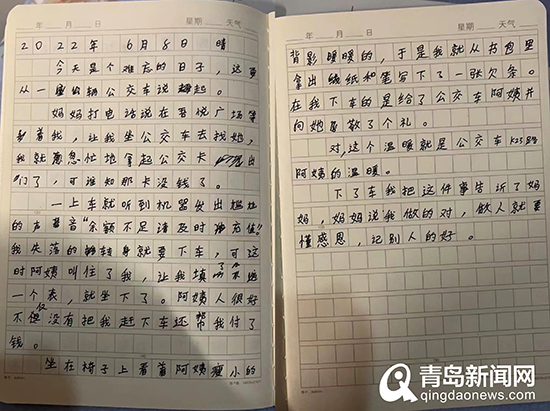 年 月 日 星期 天气
2022年 6月8日 晴
今天是个难忘的日子,这要
从一辆公交车说起。
妈妈打电话说在吾悦广场等
着我,让我坐公交车去找她,
我就急忙地拿起公交卡 出
门了,可谁知那卡没钱了。
一上车就听到机器发出尴尬
的声音“余额不足请及时充值!”
我失落的转身就要下车,可这
时阿姨叫住了我,让我填了
一个表,就坐下了。阿姨人很好
不仅没有把我赶下车还帮我付了
钱。
坐在椅子上看着阿姨瘦小的
年 月 日 星期 天气
背影暖暖的,于是我就从书包里
拿出纸和笔写下了一张欠条。
在我下车的是给了公交车阿姨并
向她敬了个礼。
对,这个温暖就是公交车K23路
阿姨的温暖。
下了车我把这件事告诉了妈
妈,妈妈说我做的对,做人就要
懂感恩,记别人的好。
青岛新闻网
qingdaonews.com